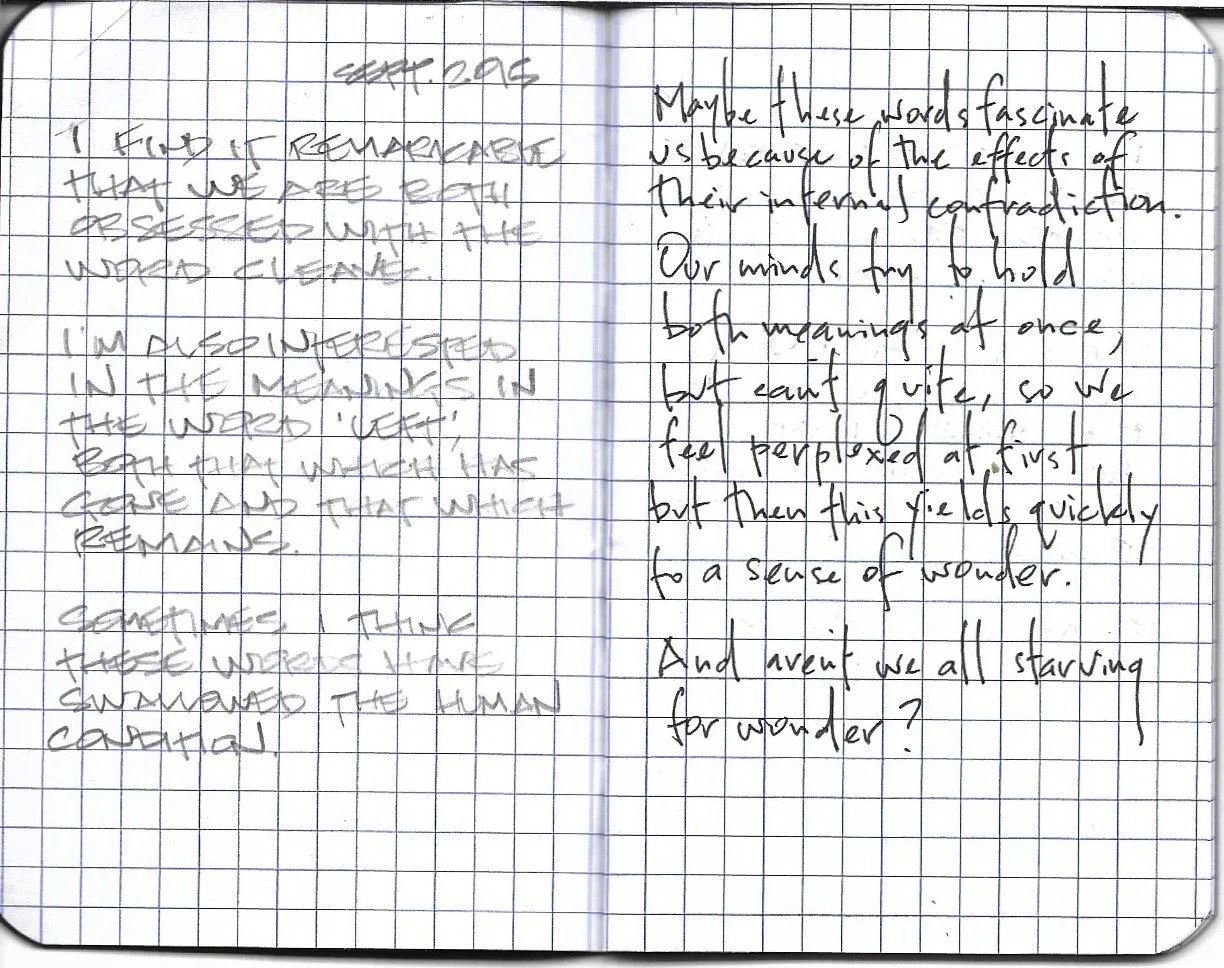 SEPT. 295
I FIND IT REMARKABLE
THAT WE ARE BOTH
OBSESSED WITH THE
WORD CLEAVE.
I'M ALSO INTERESTED
IN THE MEANINGS IN
THE WORD 'LEFT',
BOTH THAT WHICH HAS
GONE AND THAT WHICH
REMAINS.
SOMETIMES I THINK
THESE WORDS HAVE
SWALLOWED THE HUMAN
CONDITION.
Maybe these words fascinate
us because of the effects of
their internal contradiction.
Our minds try to hold
both meanings at once,
but can't quite, so we
feel perplexed at first
but then this yields quickly
to a sense of wonder.
And aren't we all starving
for wonder?